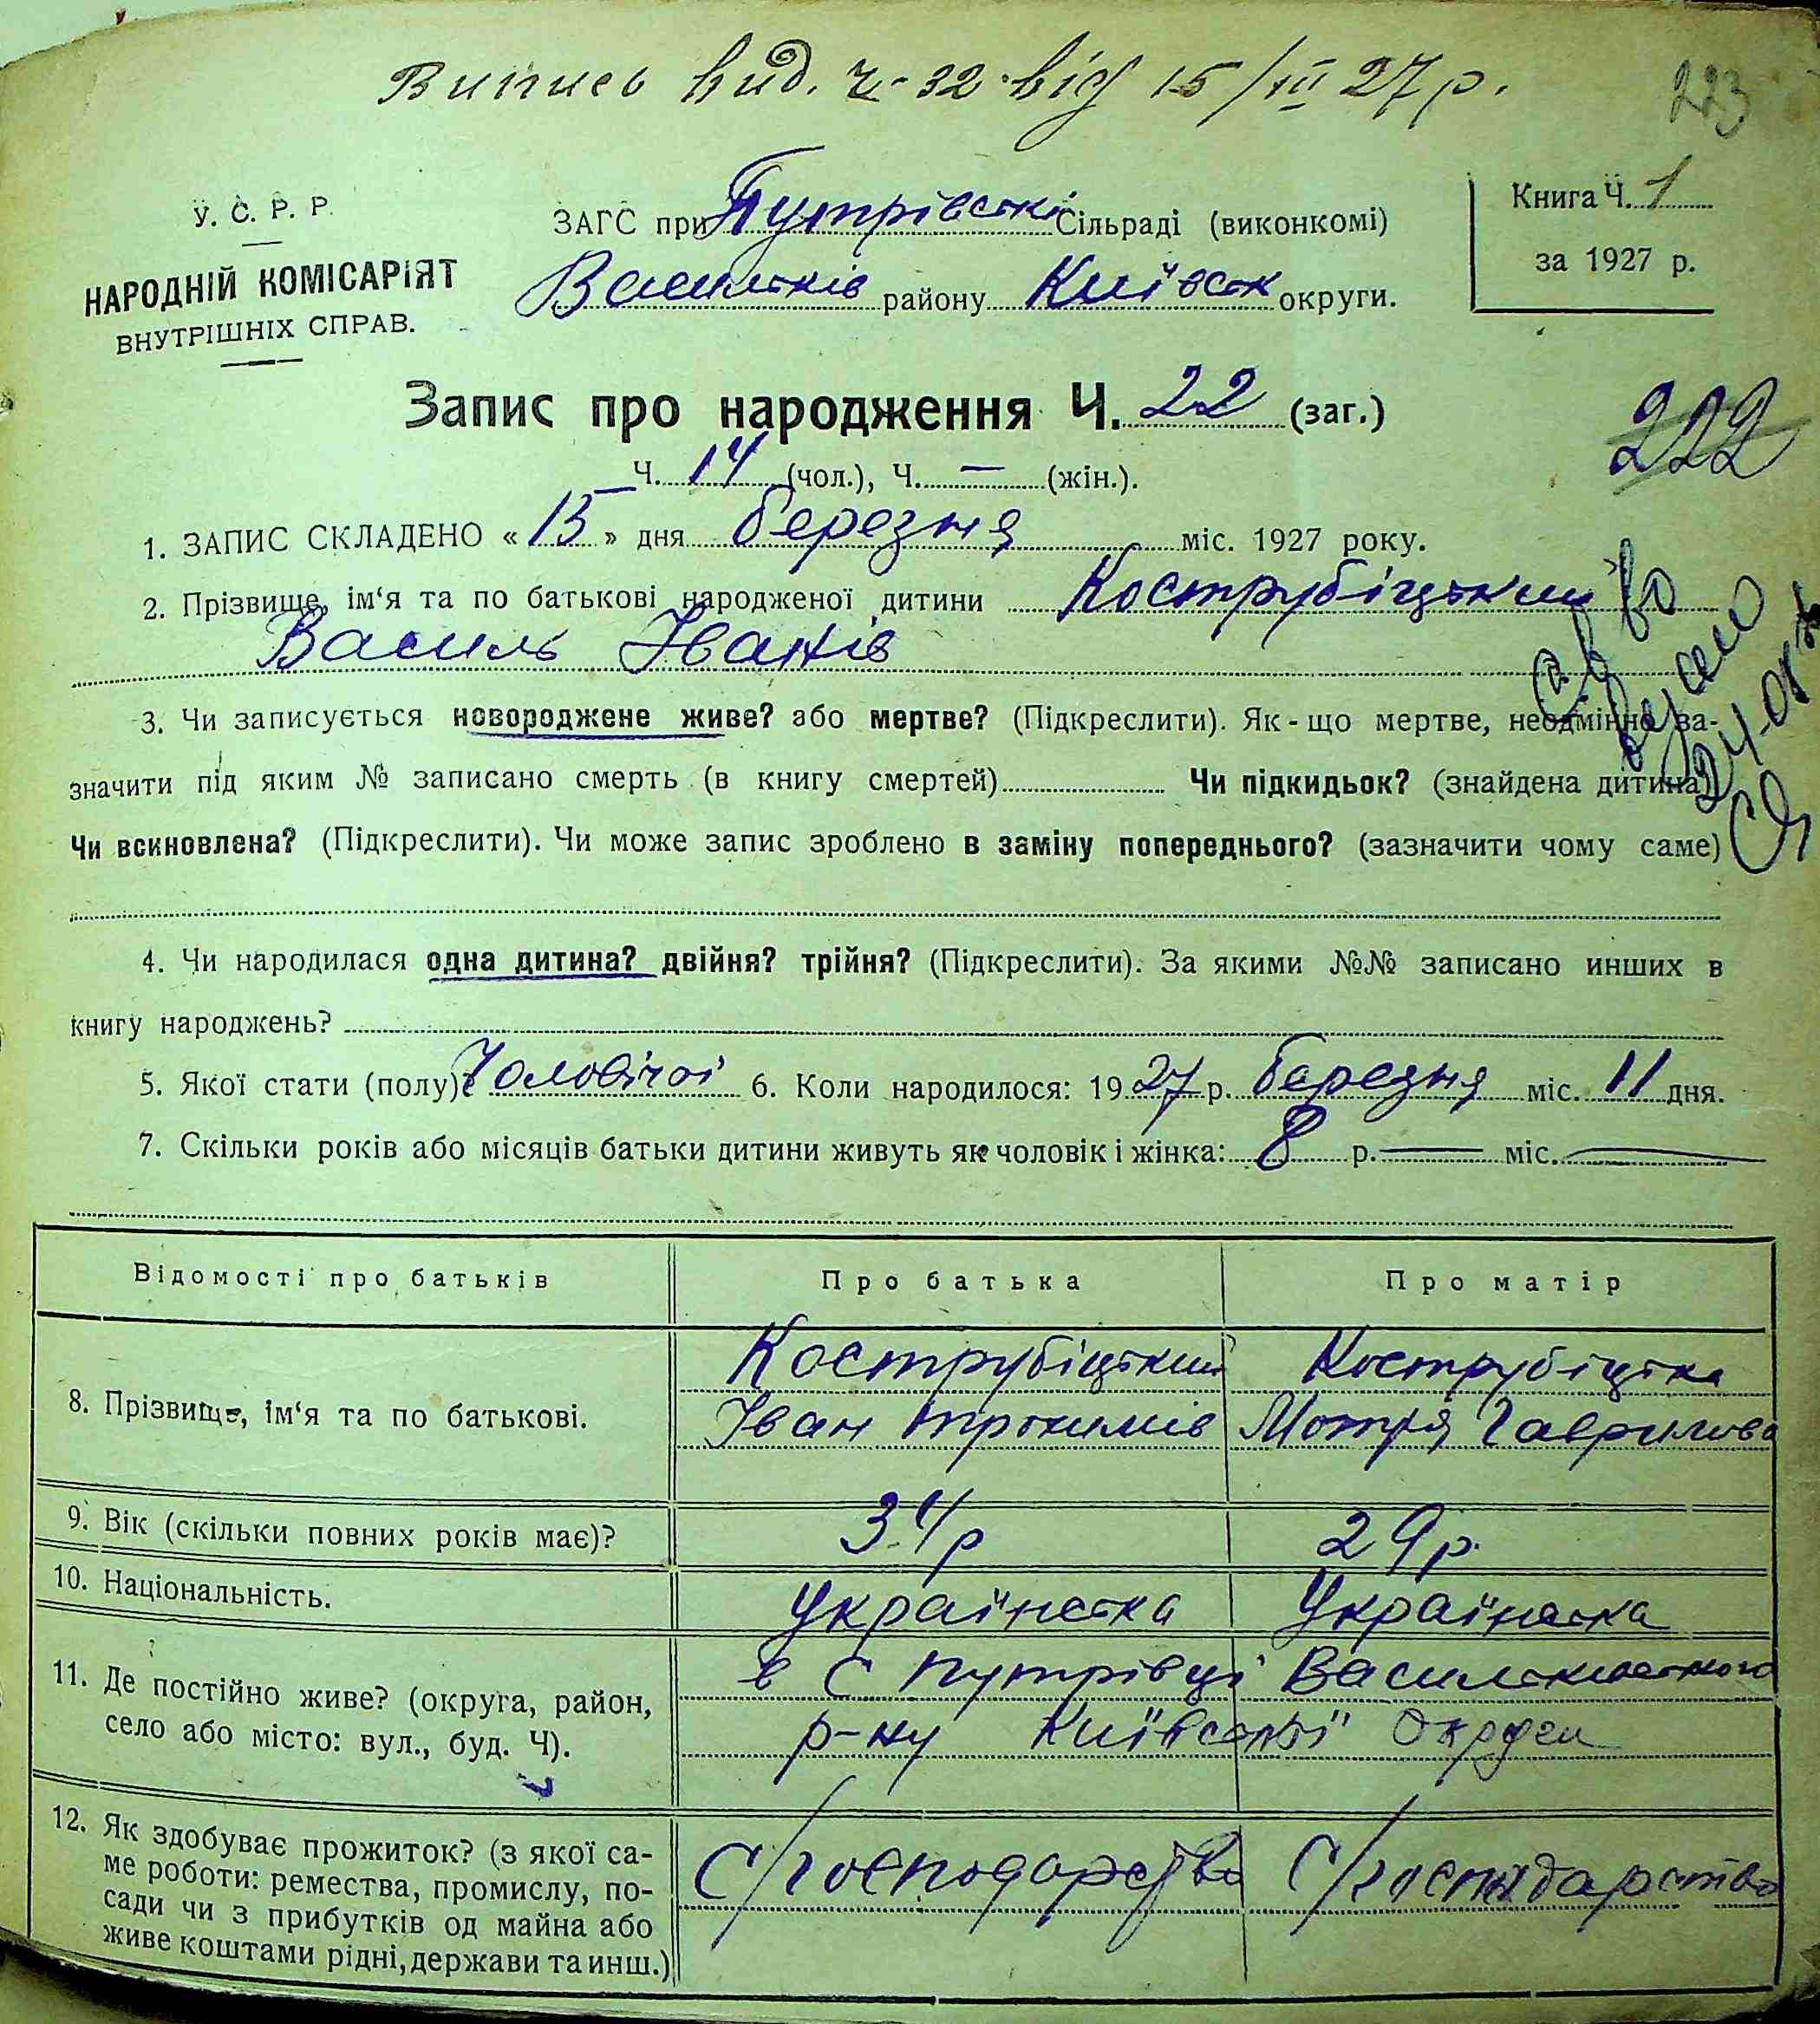 Випись вид. ч. 32 від 15/III 27 р.
223
У. С. Р. Р.
НАРОДНІЙ КОМІСАРІЯТ
ВНУТРІШНІХ СПРАВ.
ЗАГС при Путрівській Сільраді (виконкомі)
Васильків району Київськ округи.
Книга Ч. 1
за 1927 р.
Запис про народження Ч. 22 (заг.)
222
Ч. 14 (чол.), Ч. — (жін.).
1. ЗАПИС СКЛАДЕНО « 15 » дня березня міс. 1927 року.
2. Прізвище, ім‘я та по батькові народженої дитини Кострубіцький
Василь Іванів
3. Чи записується новороджене живе? або мертве? (Підкреслити). Як-що мертве, неодмінно за-
значити під яким № записано смерть (в книгу смертей) Чи підкидьок? (знайдена дитина)
Чи всиновлена? (Підкреслити). Чи може запис зроблено в заміну попереднього? (зазначити чому саме)
4. Чи народилася одна дитина? двійня? трійня? (Підкреслити). За якими №№ записано инших в
книгу народжень?
5. Якої стати (полу)? Чоловічої 6. Коли народилося: 1927 р. березня міс. 11 дня.
7. Скільки років або місяців батьки дитини живуть як чоловік і жінка: 8 р. — міс. —
Відомості про батьків Про батька Про матір
8. Прізвище, ім‘я та по батькові. Кострубіцький Кострубіцька
Іван Трохимів Мотря Гаврилова
9. Вік (скільки повних років має)? 34 р 29 р.
10. Національність. Українська Українська
11. Де постійно живе? (округа, район,
село або місто: вул., буд. Ч).
в с Путрівці Васильківського
р-ну Київської Округи
12. Як здобуває прожиток? (з якої са-
ме роботи: ремества, промислу, по-
сади чи з прибутків од майна або
живе коштами рідні, держави та инш.)
С/господарство С/господарство